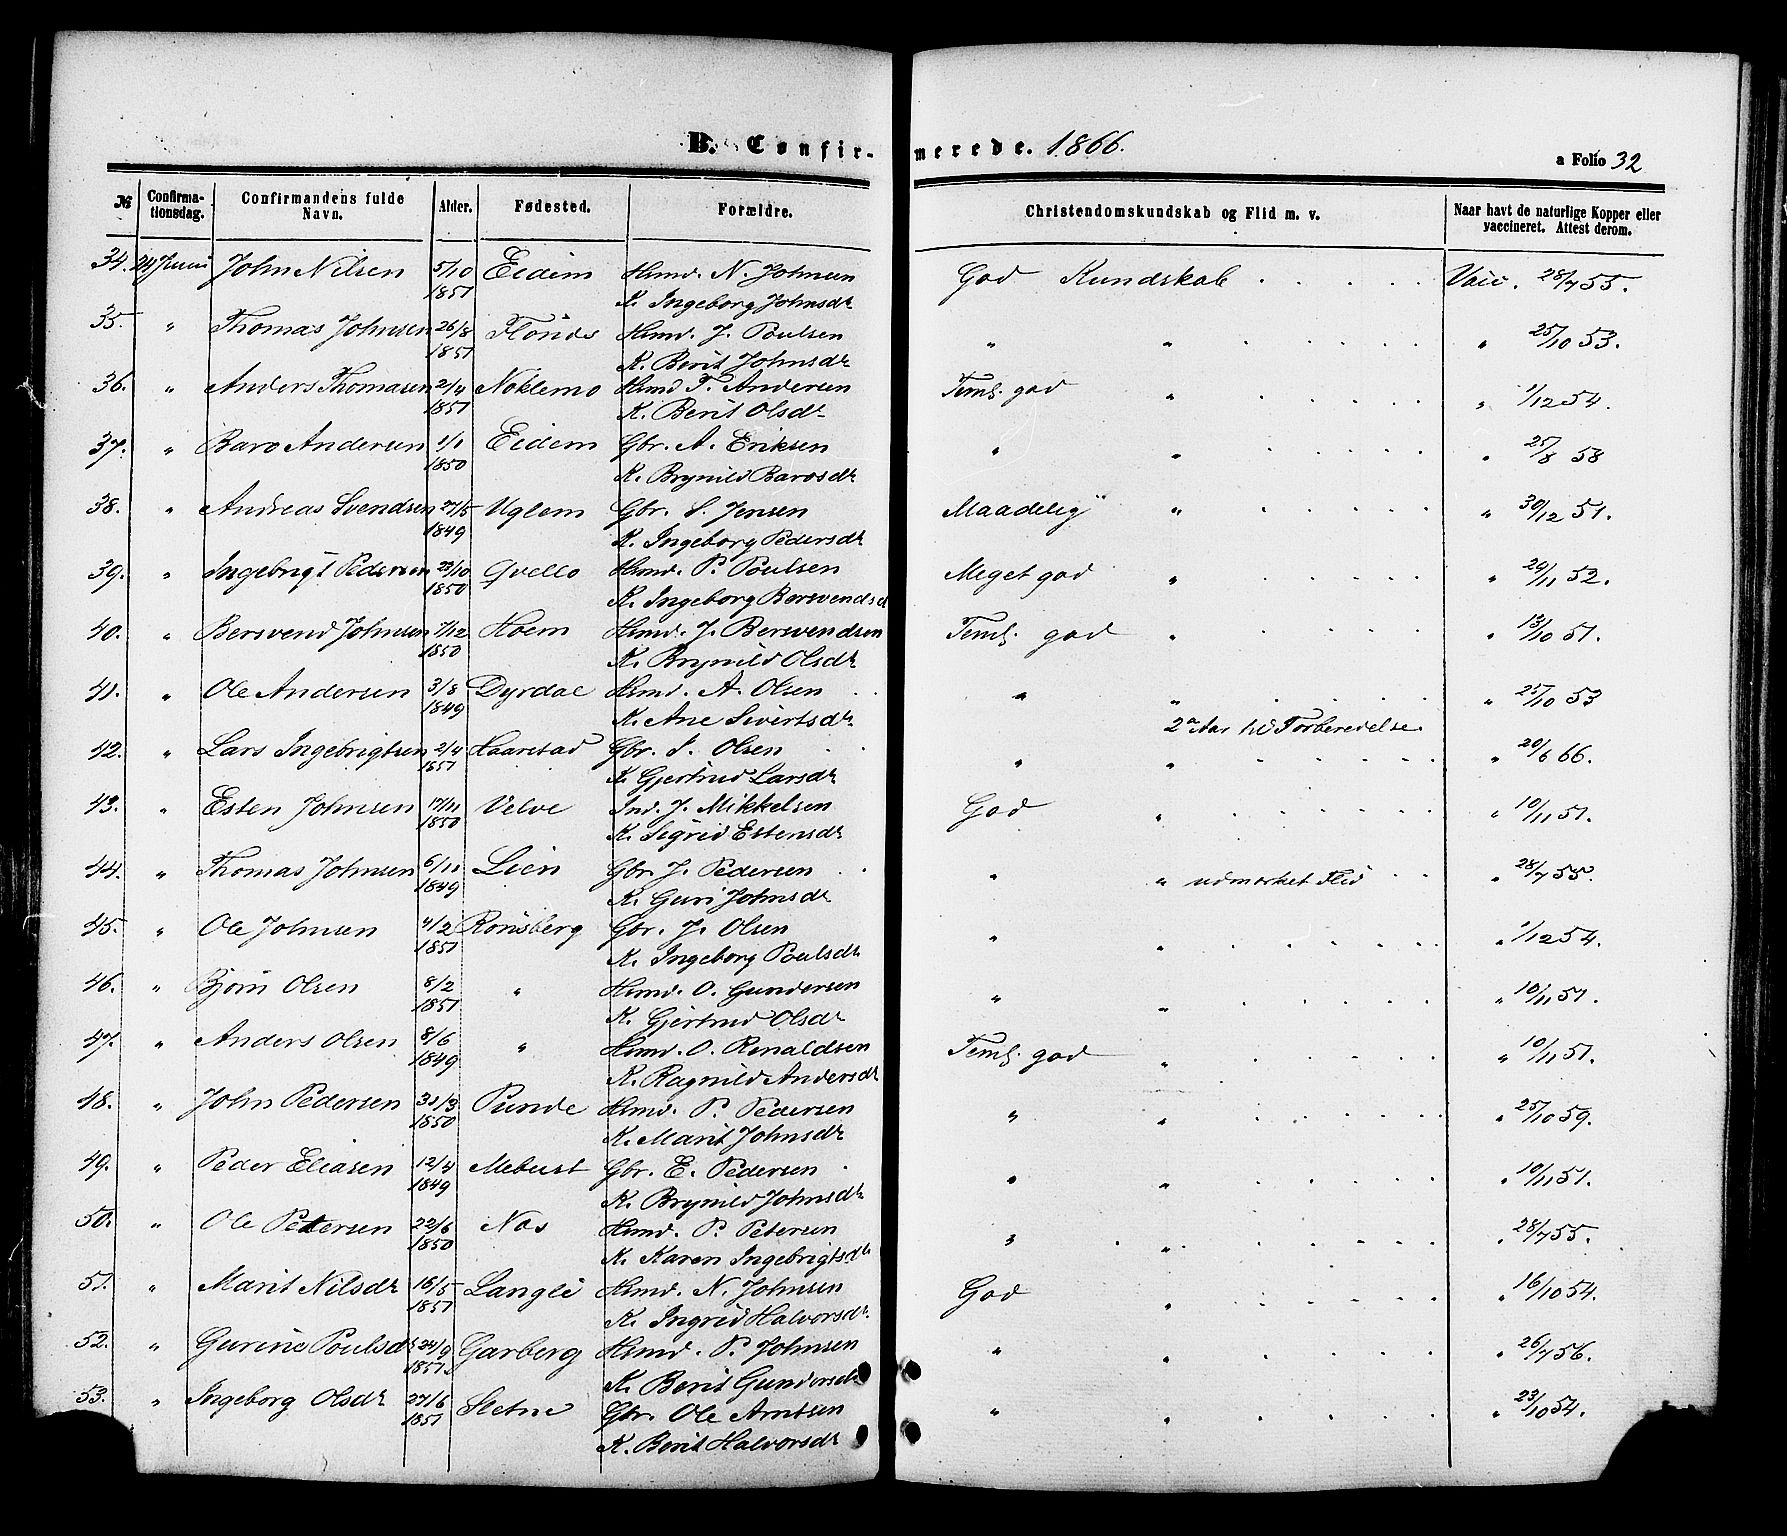 B. Confir-
merede. 1866.
a Folio 32
№ Confirma-tionsdag. Confirmandens fulde Navn. Alder. Fødested. Forældre. Christendomskundskab og Flid m. v. Naar havt de naturlige Kopper eller vaccineret. Attest derom.
34. 24 Juni John Nilsen 5/10 Eidem Husmd. N. Johnsen God Kundskab . . . . . Vacc. 28/7 55.
1851 K. Ingeborg Johnsdr
35. " Thomas Johnsen 26/8 Flönes Husmd. J. Poulsen " " . . . . . " 25/10 53.
1851 K. Berit Johnsdr
36. " Anders Thomasen 2/4 Noklemo Husmd T. Andersen Teml. god " . . . . " 1/12 54.
1851 K. Berit Olsdr
37. " Baro Andersen 1/1 Eidem Gbr. A. Eriksen " " . . . . " 25/8 58
1850 K. Brynild Barosdr
38. " Andreas Svendsen 27/5 Uglem Gbr. S. Jensen Maadelig " . . . . . " 30/12 51.
1849 K. Ingeborg Pedersdr
39. " Ingebrigt Pedersen 23/10 Qvello Husmd. P. Poulsen Meget god " . . . . " 20/11 52.
1850 K. Ingeborg Bersvendsd
40. " Bersvend Johnsen 7/12 Hoem Husmd. J. Bersvendsen Teml. god " . . . . " 13/10 51.
1850 K. Brynild Olsdr
41. " Ole Andersen 3/8 Dyrdal Husmd. A. Olsen . . " " . . . . " 25/10 53
1849 K. Ane Sivertsdr 2 Aar til Forberedelse
42. " Lars Ingebrigtsen 2/4 Haarstad Gbr. I. Olsen . . " " . . . . . " 20/6 66.
1851 K. Gjertrud Larsdr
43. " Esten Johnsen 17/11 Velve Ind. J. Mikkelsen God " . . . . . " 10/11 51.
1850 K. Sigrid Estensdr
44. " Thomas Johnsen 6/11 Lien Gbr. J. Pedersen . . " " udmærket Flid . . " 28/7 55.
1849 K. Guri Johnsdr
45. " Ole Johnsen 4/2 Rönsberg Gbr. J. Olsen " " . . . . . " 1/12 54.
1851 K. Ingeborg Poulsdr
46. " Bjørn Olsen 8/2 " Husmd. O. Gundersen " " . . . . . " 10/11 51.
1851 K. Gjertrud Olsdr
47. " Anders Olsen 8/6 " Husmd. O. Renaldsen Teml. god " . . . . . " 10/11 51.
1849 K. Ragnild Andersdr
48. " John Pedersen 31/3 Punde Husmd. P. Pedersen " " . . . . . " 25/10 59.
1850 K. Marit Johnsdr
49. " Peder Eliasen 12/4 Mebust Gbr. E. Pedersen . " " . . . . . " 10/11 51.
1849 K. Brynild Johnsdr
50. " Ole Petersen 22/6 Næs Husmd. P. Petersen " . " . . . . . " 28/7 55.
1850 K. Karen Ingebrigtsdr
51. " Marit Nilsdr 16/5 Langli Husmd. N. Johnsen God " . . . . . " 16/10 54.
1851 K. Ingrid Halvorsdr.
52. " Gurine Poulsdr 24/9 Garberg Husmd. P. Johnsen " " . . . . " 26/7 56.
1851 K. Berit Gundersdr
53. " Ingeborg Olsdr 27/6 Sletne Gbr. Ole Arntsen " " . . . . . " 23/10 54.
1851 K. Berit Halvorsdr